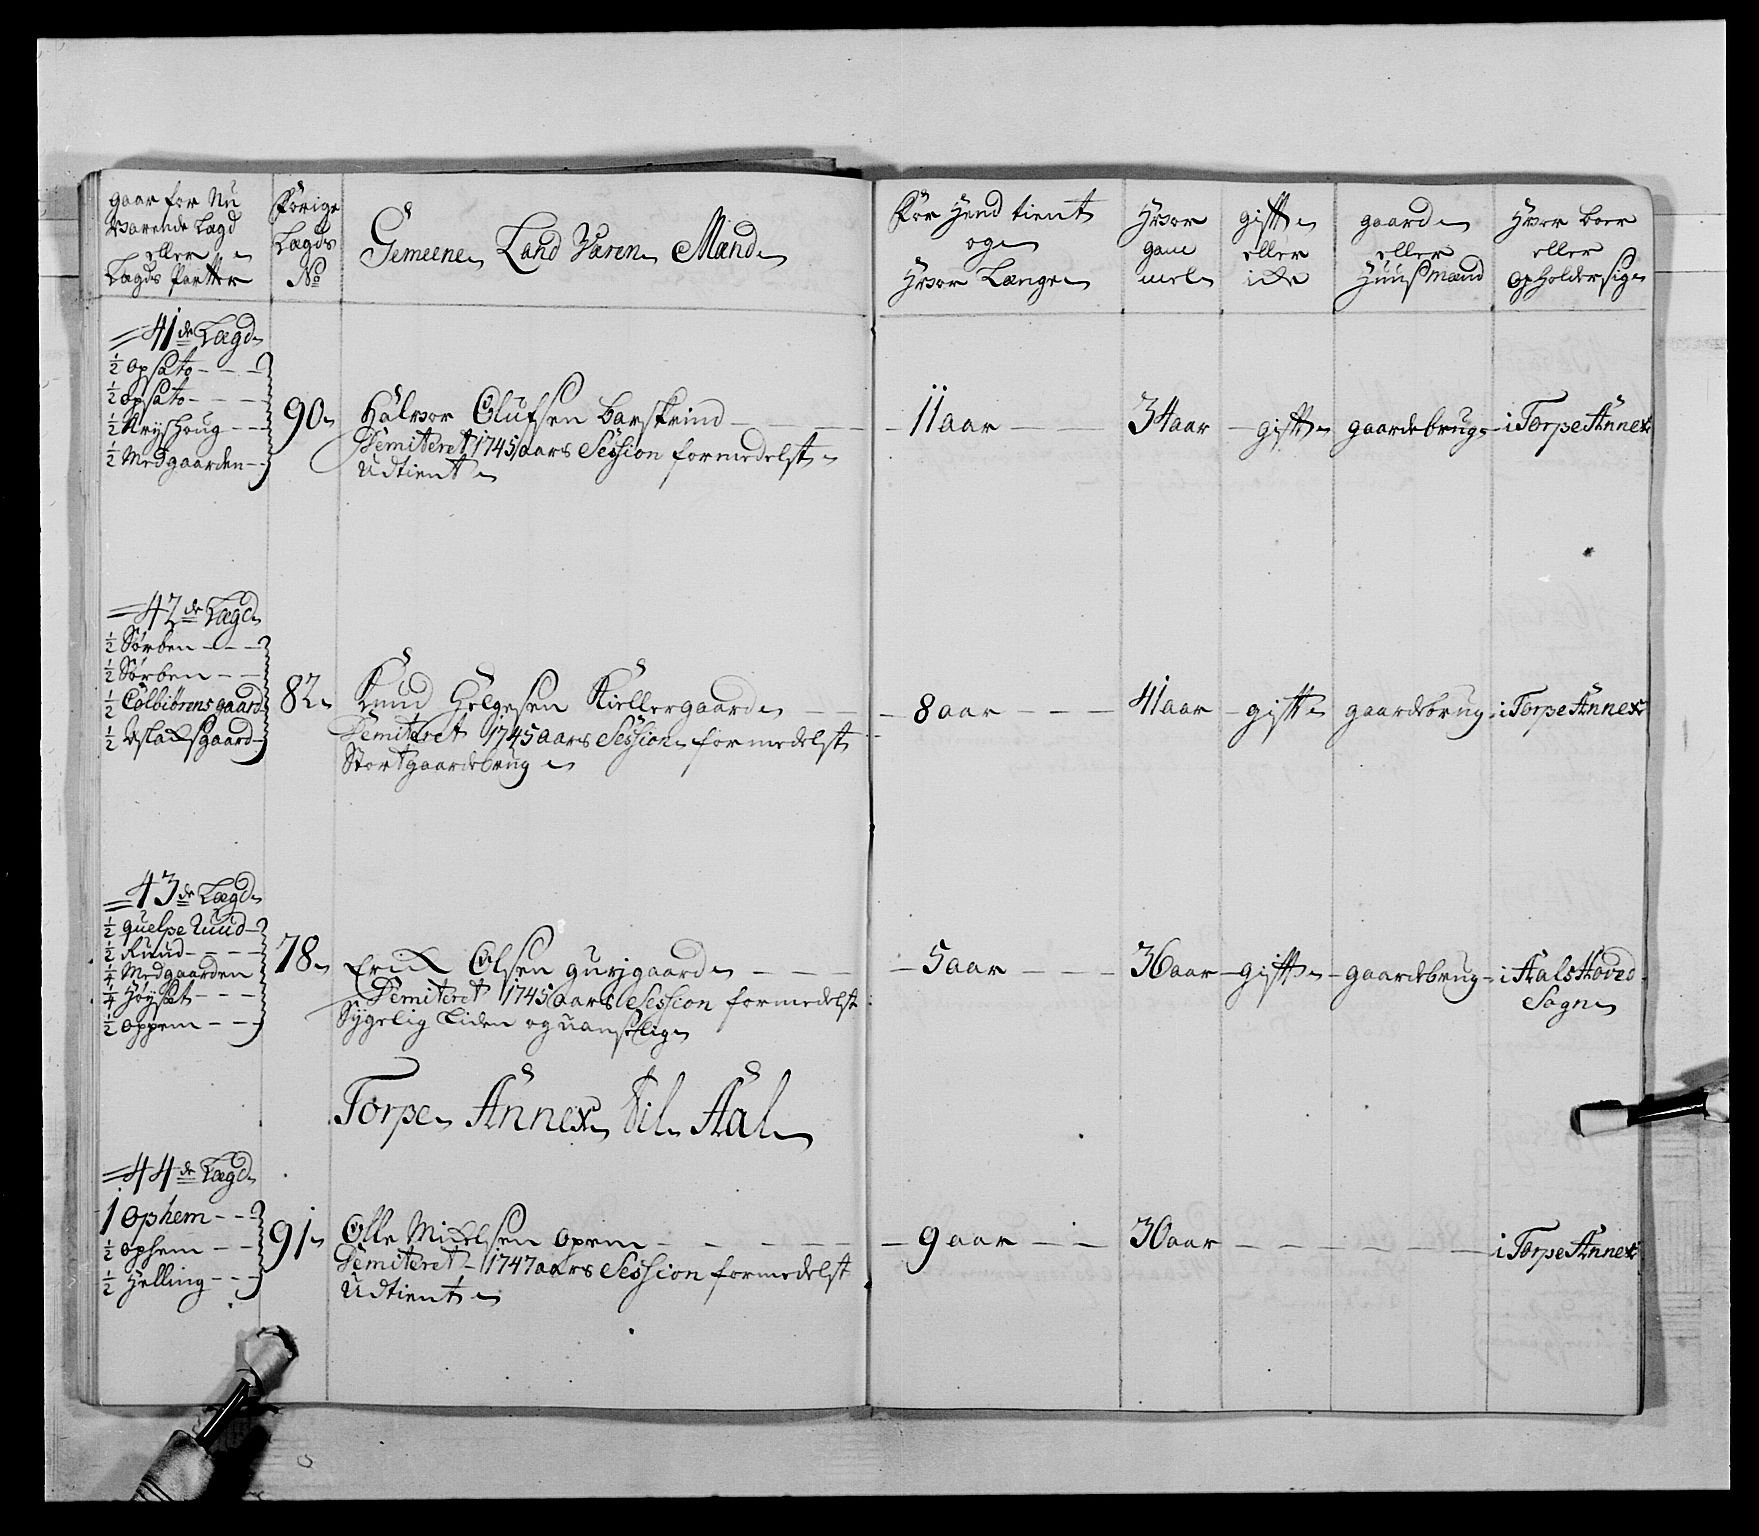 gaar for Nu
værende Lægd
eller
Lægds Partter
Forige
Lægds
No
Gemeene LandVæren Mænd
För Hend tient
og
Hvor Længe
Hvor
gam
mel
gifft
eller
icke
gaard
eller
Huusmænd
Hvor boer
eller
opholder sig
41de Lægd
1/2 opsato
1/2 opsato
1/2 Nryshoug
1/2 Medgaarden
90
Halvor Olufsen Barskrind
Demiteret 1745 aars Session formedelst
Udtient
11 aar
34 aar
gifft
gaardebrug
i Torpe Annex
42de Lægd
1/2 Sørben
1/2 Sørben
1/2 Colbiörens gaard
1/2 Aslacksgaard
82
Knud Helgesen Kiellergaard
Demiteret 1745 aars Session formedelst
Stort gaardebrug
8 aar
41 aar
gifft
gaardebrug
i Torpe Annex
43de Lægd
1/2 quelpe Ruud
1/2 Ruud
1/4 Medgaarden
1/4 Høyset
1/2 oppem
78
Erick Olsen gurigaard
Demiteret 1745 aars Session formedelst
Sygelig Liden og uanselig
5 aar
36 aar
gifft
gaardebrug
i Aals Hoved
Sogn
Torpe Annex til Aal
44de Lægd
1 ophem
1/2 ophem
1/2 Helling
91
Olle Mickelsen opem
Demiteret 1747 aars Session formedelst
Udtient
9 aar
30 aar
i Torpe Annex